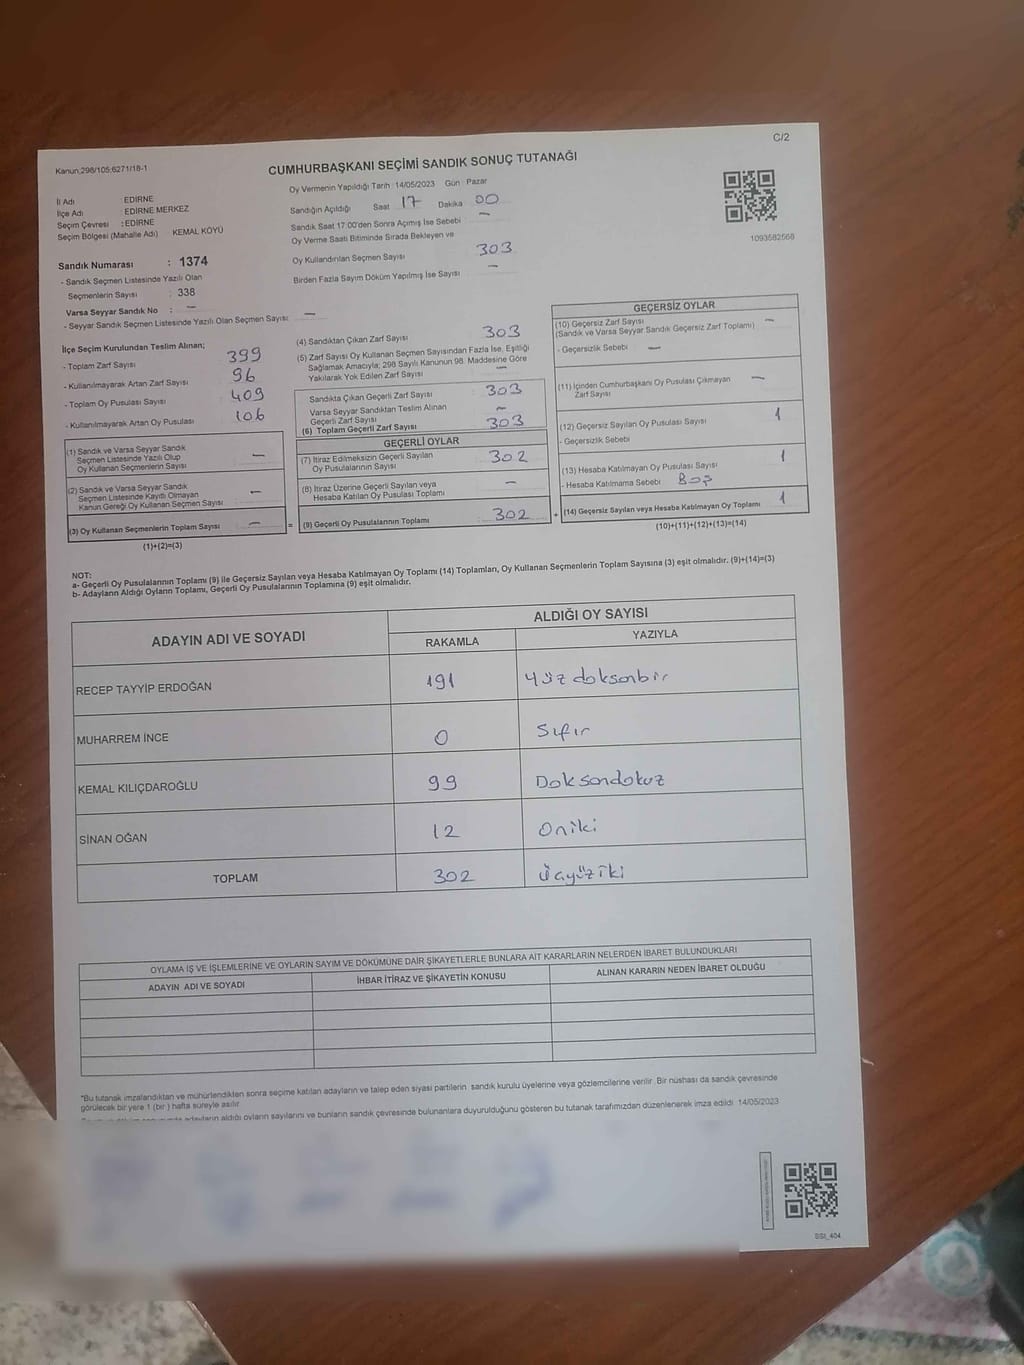 C/2
Kanun;298/105;6271/18-1
CUMHURBAŞKANI SEÇİMİ SANDIK SONUÇ TUTANAĞI
Oy Vermenin Yapıldığı Tarih : 14/05/2023 Gün : Pazar
İl Adı : EDİRNE
İlçe Adı : EDİRNE MERKEZ
Seçim Çevresi : EDİRNE
Seçim Bölgesi (Mahalle Adı) KEMAL KÖYÜ
Sandığın Açıldığı Saat 17 Dakika 00
Sandık Saat 17:00'den Sonra Açımış İse Sebebi : —
Oy Verme Saati Bitiminde Sırada Bekleyen ve
Oy Kullandırılan Seçmen Sayısı 303
Birden Fazla Sayım Döküm Yapılmış İse Sayısı —
1093582568
Sandık Numarası : 1374
- Sandık Seçmen Listesinde Yazılı Olan
Seçmenlerin Sayısı : 338
Varsa Seyyar Sandık No : —
- Seyyar Sandık Seçmen Listesinde Yazılı Olan Seçmen Sayısı: —
İlçe Seçim Kurulundan Teslim Alınan;
- Toplam Zarf Sayısı 399
- Kullanılmayarak Artan Zarf Sayısı 96
- Toplam Oy Pusulası Sayısı 409
- Kullanılmayarak Artan Oy Pusulası 106
(1) Sandık ve Varsa Seyyar Sandık
Seçmen Listesinde Yazılı Olup
Oy Kullanan Seçmenlerin Sayısı —
(2) Sandık ve Varsa Seyyar Sandık
Seçmen Listesinde Kaydı Olmayan
Kanun Gereği Oy Kullanan Seçmen Sayısı —
(3) Oy Kullanan Seçmenlerin Toplam Sayısı —
(1)+(2)=(3)
(4) Sandıktan Çıkan Zarf Sayısı 303
(5) Zarf Sayısı Oy Kullanan Seçmen Sayısından Fazla İse, Eşitliği
Sağlamak Amacıyla; 298 Sayılı Kanunun 98. Maddesine Göre
Yakılarak Yok Edilen Zarf Sayısı —
Sandıkta Çıkan Geçerli Zarf Sayısı 303
Varsa Seyyar Sandıktan Teslim Alınan
Geçerli Zarf Sayısı —
(6) Toplam Geçerli Zarf Sayısı 303
GEÇERLİ OYLAR
(7) İtiraz Edilmeksizin Geçerli Sayılan
Oy Pusulalarının Sayısı 302
(8) İtiraz Üzerine Geçerli Sayılan veya
Hesaba Katılan Oy Pusulası Toplamı —
= (9) Geçerli Oy Pusulalarının Toplamı : 302 +
GEÇERSİZ OYLAR
(10) Geçersiz Zarf Sayısı
(Sandık ve Varsa Seyyar Sandık Geçersiz Zarf Toplamı) —
- Geçersizlik Sebebi —
(11) İçinden Cumhurbaşkanı Oy Pusulası Çıkmayan
Zarf Sayısı —
(12) Geçersiz Sayılan Oy Pusulası Sayısı 1
- Geçersizlik Sebebi
(13) Hesaba Katılmayan Oy Pusulası Sayısı 1
- Hesaba Katılmama Sebebi Boş
(14) Geçersiz Sayılan veya Hesaba Katılmayan Oy Toplamı 1
(10)+(11)+(12)+(13)=(14)
NOT:
a- Geçerli Oy Pusulalarının Toplamı (9) ile Geçersiz Sayılan veya Hesaba Katılmayan Oy Toplamı (14) Toplamları, Oy Kullanan Seçmenlerin Toplam Sayısına (3) eşit olmalıdır. (9)+(14)=(3)
b- Adayların Aldığı Oyların Toplamı, Geçerli Oy Pusulalarının Toplamına (9) eşit olmalıdır.
ADAYIN ADI VE SOYADI
ALDIĞI OY SAYISI
RAKAMLA YAZIYLA
RECEP TAYYİP ERDOĞAN 191 Yüz doksanbir
MUHARREM İNCE 0 Sıfır
KEMAL KILIÇDAROĞLU 99 Doksandokuz
SİNAN OĞAN 12 Oniki
TOPLAM 302 Üçyüziki
OYLAMA İŞ VE İŞLEMLERİNE VE OYLARIN SAYIM VE DÖKÜMÜNE DAİR ŞİKAYETLERLE BUNLARA AİT KARARLARIN NELERDEN İBARET BULUNDUKLARI
ADAYIN ADI VE SOYADI İHBAR İTİRAZ VE ŞİKAYETİN KONUSU ALINAN KARARIN NEDEN İBARET OLDUĞU
*Bu tutanak imzalandıktan ve mühürlendikten sonra seçime katılan adayların ve talep eden siyasi partilerin, sandık kurulu üyelerine veya gözlemcilerine verilir. Bir nüshası da sandık çevresinde
görülecek bir yere 1 (bir) hafta süreyle asılır.
adayların aldığı oyların sayılarını ve bunların sandık çevresinde bulunanlara duyurulduğunu gösteren bu tutanak tarafımızdan düzenlenerek imza edildi. 14/05/2023
BSI_404